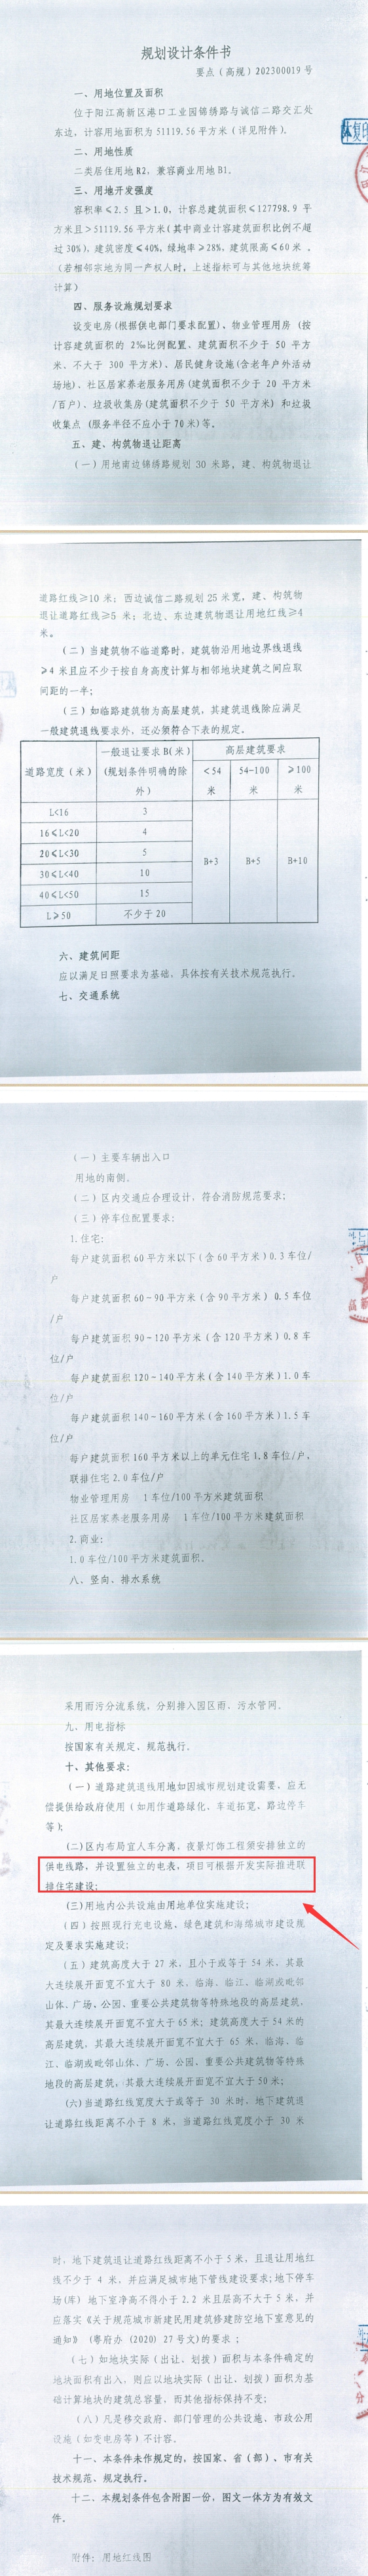 规划设计条件书
要点（高规）202300019 号
一、用地位置及面积
位于阳江高新区港口工业园锦绣路与诚信二路交汇处
东边，计容用地面积为 51119.56 平方米（详见附件）。
二、用地性质
二类居住用地 R2，兼容商业用地 B1。
三、用地开发强度
容积率≤2.5 且>1.0，计容总建筑面积≤127798.9 平
方米且>51119.56 平方米（其中商业计容建筑面积比例不超
过 30%），建筑密度≤40%，绿地率≥28%，建筑限高≤60 米。
（若相邻宗地为同一产权人时，上述指标可与其他地块统筹
计算）
四、服务设施规划要求
设变电房（根据供电部门要求配置）、物业管理用房（按
计容建筑面积的 2‰比例配置，建筑面积不少于 50 平方
米、不大于 300 平方米）、居民健身设施（含老年户外活动
场地）、社区居家养老服务用房（建筑面积不少于 20 平方米
/百户）、垃圾收集房（建筑面积不少于 50 平方米）和垃圾
收集点（服务半径不应小于 70 米）等。
五、建、构筑物退让距离
（一）用地南边锦绣路规划 30 米路，建、构筑物退让
道路红线≥10 米；西边诚信二路规划 25 米宽，建、构筑物
退让道路红线≥5 米；北边、东边建筑物退让用地红线≥4
米。
（二）当建筑物不临道路时，建筑物沿用地边界线退线
≥4 米且应不少于按自身高度计算与相邻地块建筑之间应取
间距的一半；
（三）如临路建筑物为高层建筑，其建筑退线除应满足
一般建筑退线要求外，还必须符合下表的规定。
道路宽度（米） 一般退让要求 B（米）（规划条件明确的除外） 高层建筑要求
<54 米 54-100 米 ≥100 米
L<16 3
16≤L<20 4
20≤L<30 5
30≤L<40 10
40≤L<50 15
L≥50 不少于 20
B+3 B+5 B+10
六、建筑间距
应以满足日照要求为基础，具体按有关技术规范执行。
七、交通系统
（一）主要车辆出入口
用地的南侧。
（二）区内交通应合理设计，符合消防规范要求；
（三）停车位配置要求：
1.住宅：
每户建筑面积 60 平方米以下（含 60 平方米）0.3 车位/
户
每户建筑面积 60-90 平方米（含 90 平方米）0.5 车位
/户
每户建筑面积 90-120 平方米（含 120 平方米）0.8 车
位/户
每户建筑面积 120-140 平方米（含 140 平方米）1.0 车
位/户
每户建筑面积 140-160 平方米（含 160 平方米）1.5 车
位/户
每户建筑面积 160 平方米以上的单元住宅 1.8 车位/户，
联排住宅 2.0 车位/户
物业管理用房 1 车位/100 平方米建筑面积
社区居家养老服务用房 1 车位/100 平方米建筑面积
2.商业：
1.0 车位/100 平方米建筑面积。
八、竖向、排水系统
采用雨污分流系统，分别排入园区雨、污水管网。
九、用电指标
按国家有关规定、规范执行。
十、其他要求：
（一）道路建筑退线用地如因城市规划建设需要，应无
偿提供给政府使用（如用作道路绿化、车道拓宽、路边停车
等）；
（二）区内布局宜人车分离，夜景灯饰工程须安排独立的
供电线路，并设置独立的电表，项目可根据开发实际推进联
排住宅建设；
（三）用地内公共设施由用地单位实施建设；
（四）按照现行充电设施、绿色建筑和海绵城市建设规
定及要求实施建设；
（五）建筑高度大于 27 米，且小于或等于 54 米，其最
大连续展开面宽不宜大于 80 米，临海、临江、临湖或毗邻
山体、广场、公园、重要公共建筑物等特殊地段的高层建筑，
其最大连续展开面宽不宜大于 65 米；建筑高度大于 54 米的
高层建筑，其最大连续展开面宽不宜大于 65 米，临海、临
江、临湖或毗邻山体、广场、公园、重要公共建筑物等特殊
地段的高层建筑，其最大连续展开面宽不宜大于 50 米；
（六）当道路红线宽度大于或等于 30 米时，地下建筑退
让道路红线距离不小于 8 米，当道路红线宽度小于 30 米
时，地下建筑退让道路红线距离不小于 5 米，且退让用地红
线不少于 4 米，并应满足城市地下管线建设要求；地下停车
场（库）地下室净高不得小于 2.2 米且层高不大于 5 米，并
应落实《关于规范城市新建民用建筑修建防空地下室意见的
通知》（粤府办〔2020〕27 号文）的要求；
（七）如地块实际（出让、划拨）面积与本条件确定的
地块面积有出入，则应以地块实际（出让、划拨）面积为基
础计算地块的建筑总容量，而其他指标保持不变；
（八）凡是移交政府、部门管理的公共设施、市政公用
设施（如变电房等）不计容。
十一、本条件未作规定的，按国家、省（部）、市有关
技术规范、规定执行。
十二、本规划条件包含附图一份，图文一体方为有效文
件。
附件：用地红线图